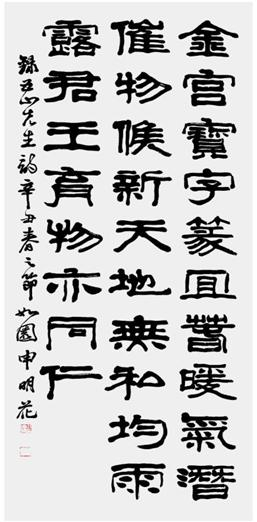 金宮寶字篆宜春暖氣潛
催物候新天地無私均雨
露君王育物亦同仁
錄五山先生韵辛丑春之節如園申明花